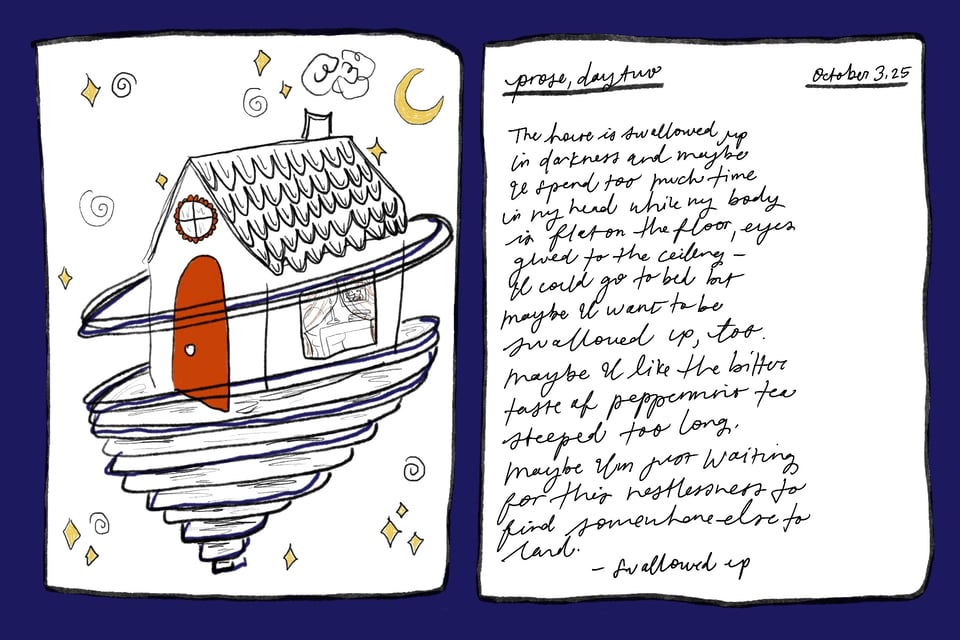 prose, day two
October 3. 25
The house is swallowed up
in darkness and maybe
I spend too much time
in my head while my body
is flat on the floor, eyes
glued to the ceiling –
I could go to bed but
maybe I want to be
swallowed up, too.
maybe I like the bitter
taste of peppermint tea
steeped too long.
maybe I'm just waiting
for this restlessness to
find somewhere else to
land.
– swallowed up